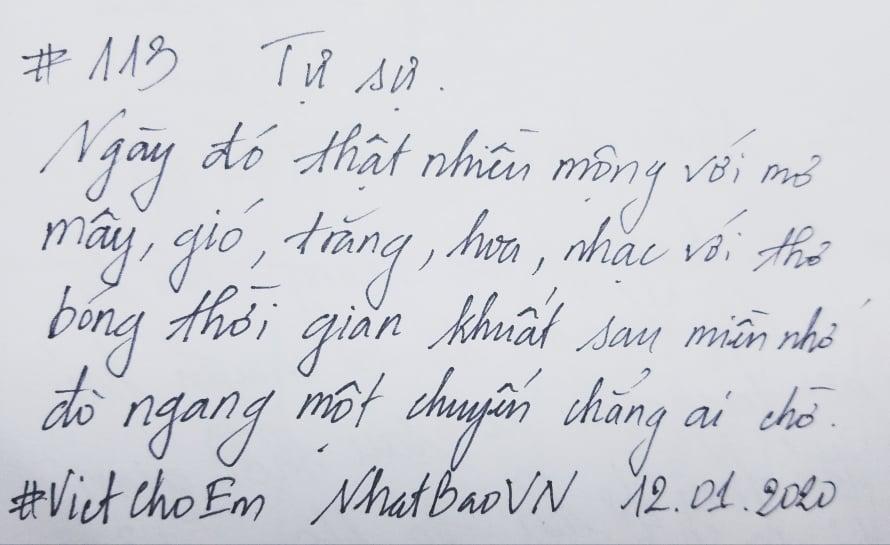 #113 Tự sự.
Ngày đó thật nhiều mộng với mơ
mây, gió, trăng, hoa, nhạc với thơ
bóng thời gian khuất sau miền nhớ
đò ngang một chuyến chẳng ai chờ.
#VietChoEm NhatBaoVN 12.01.2020